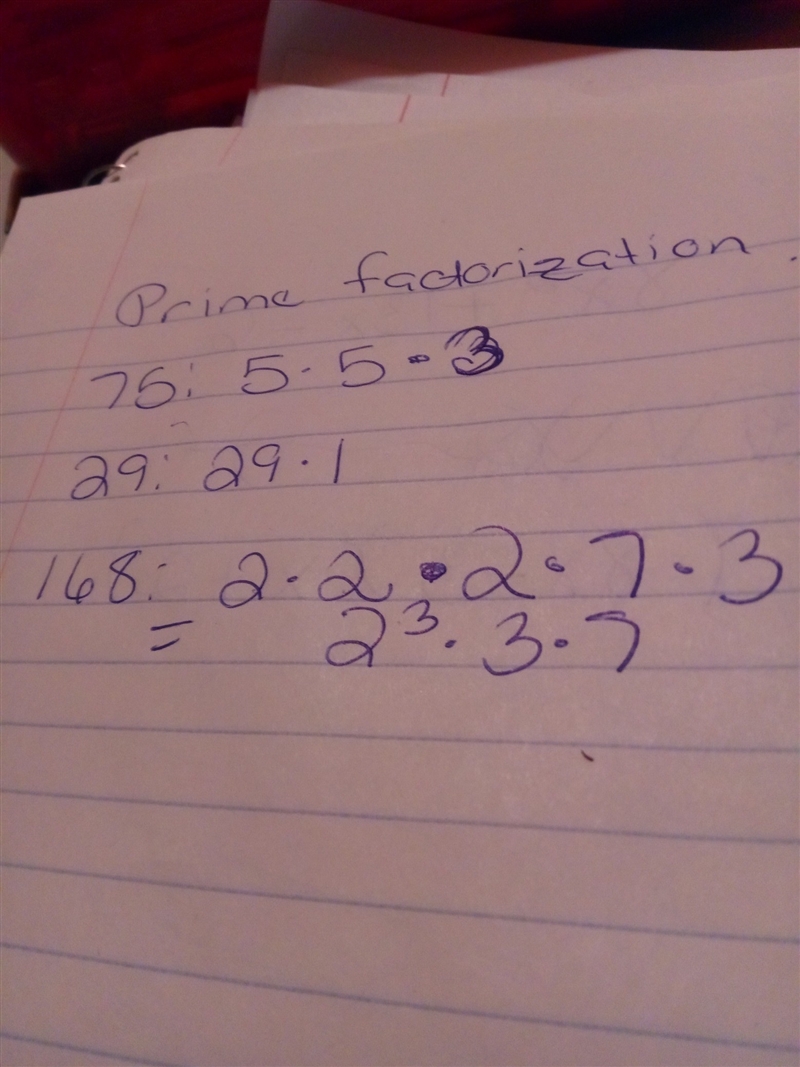 Prime factorization.
75: 5·5·3
29: 29·1
168: 2·2·2·7·3
= 2³·3·7